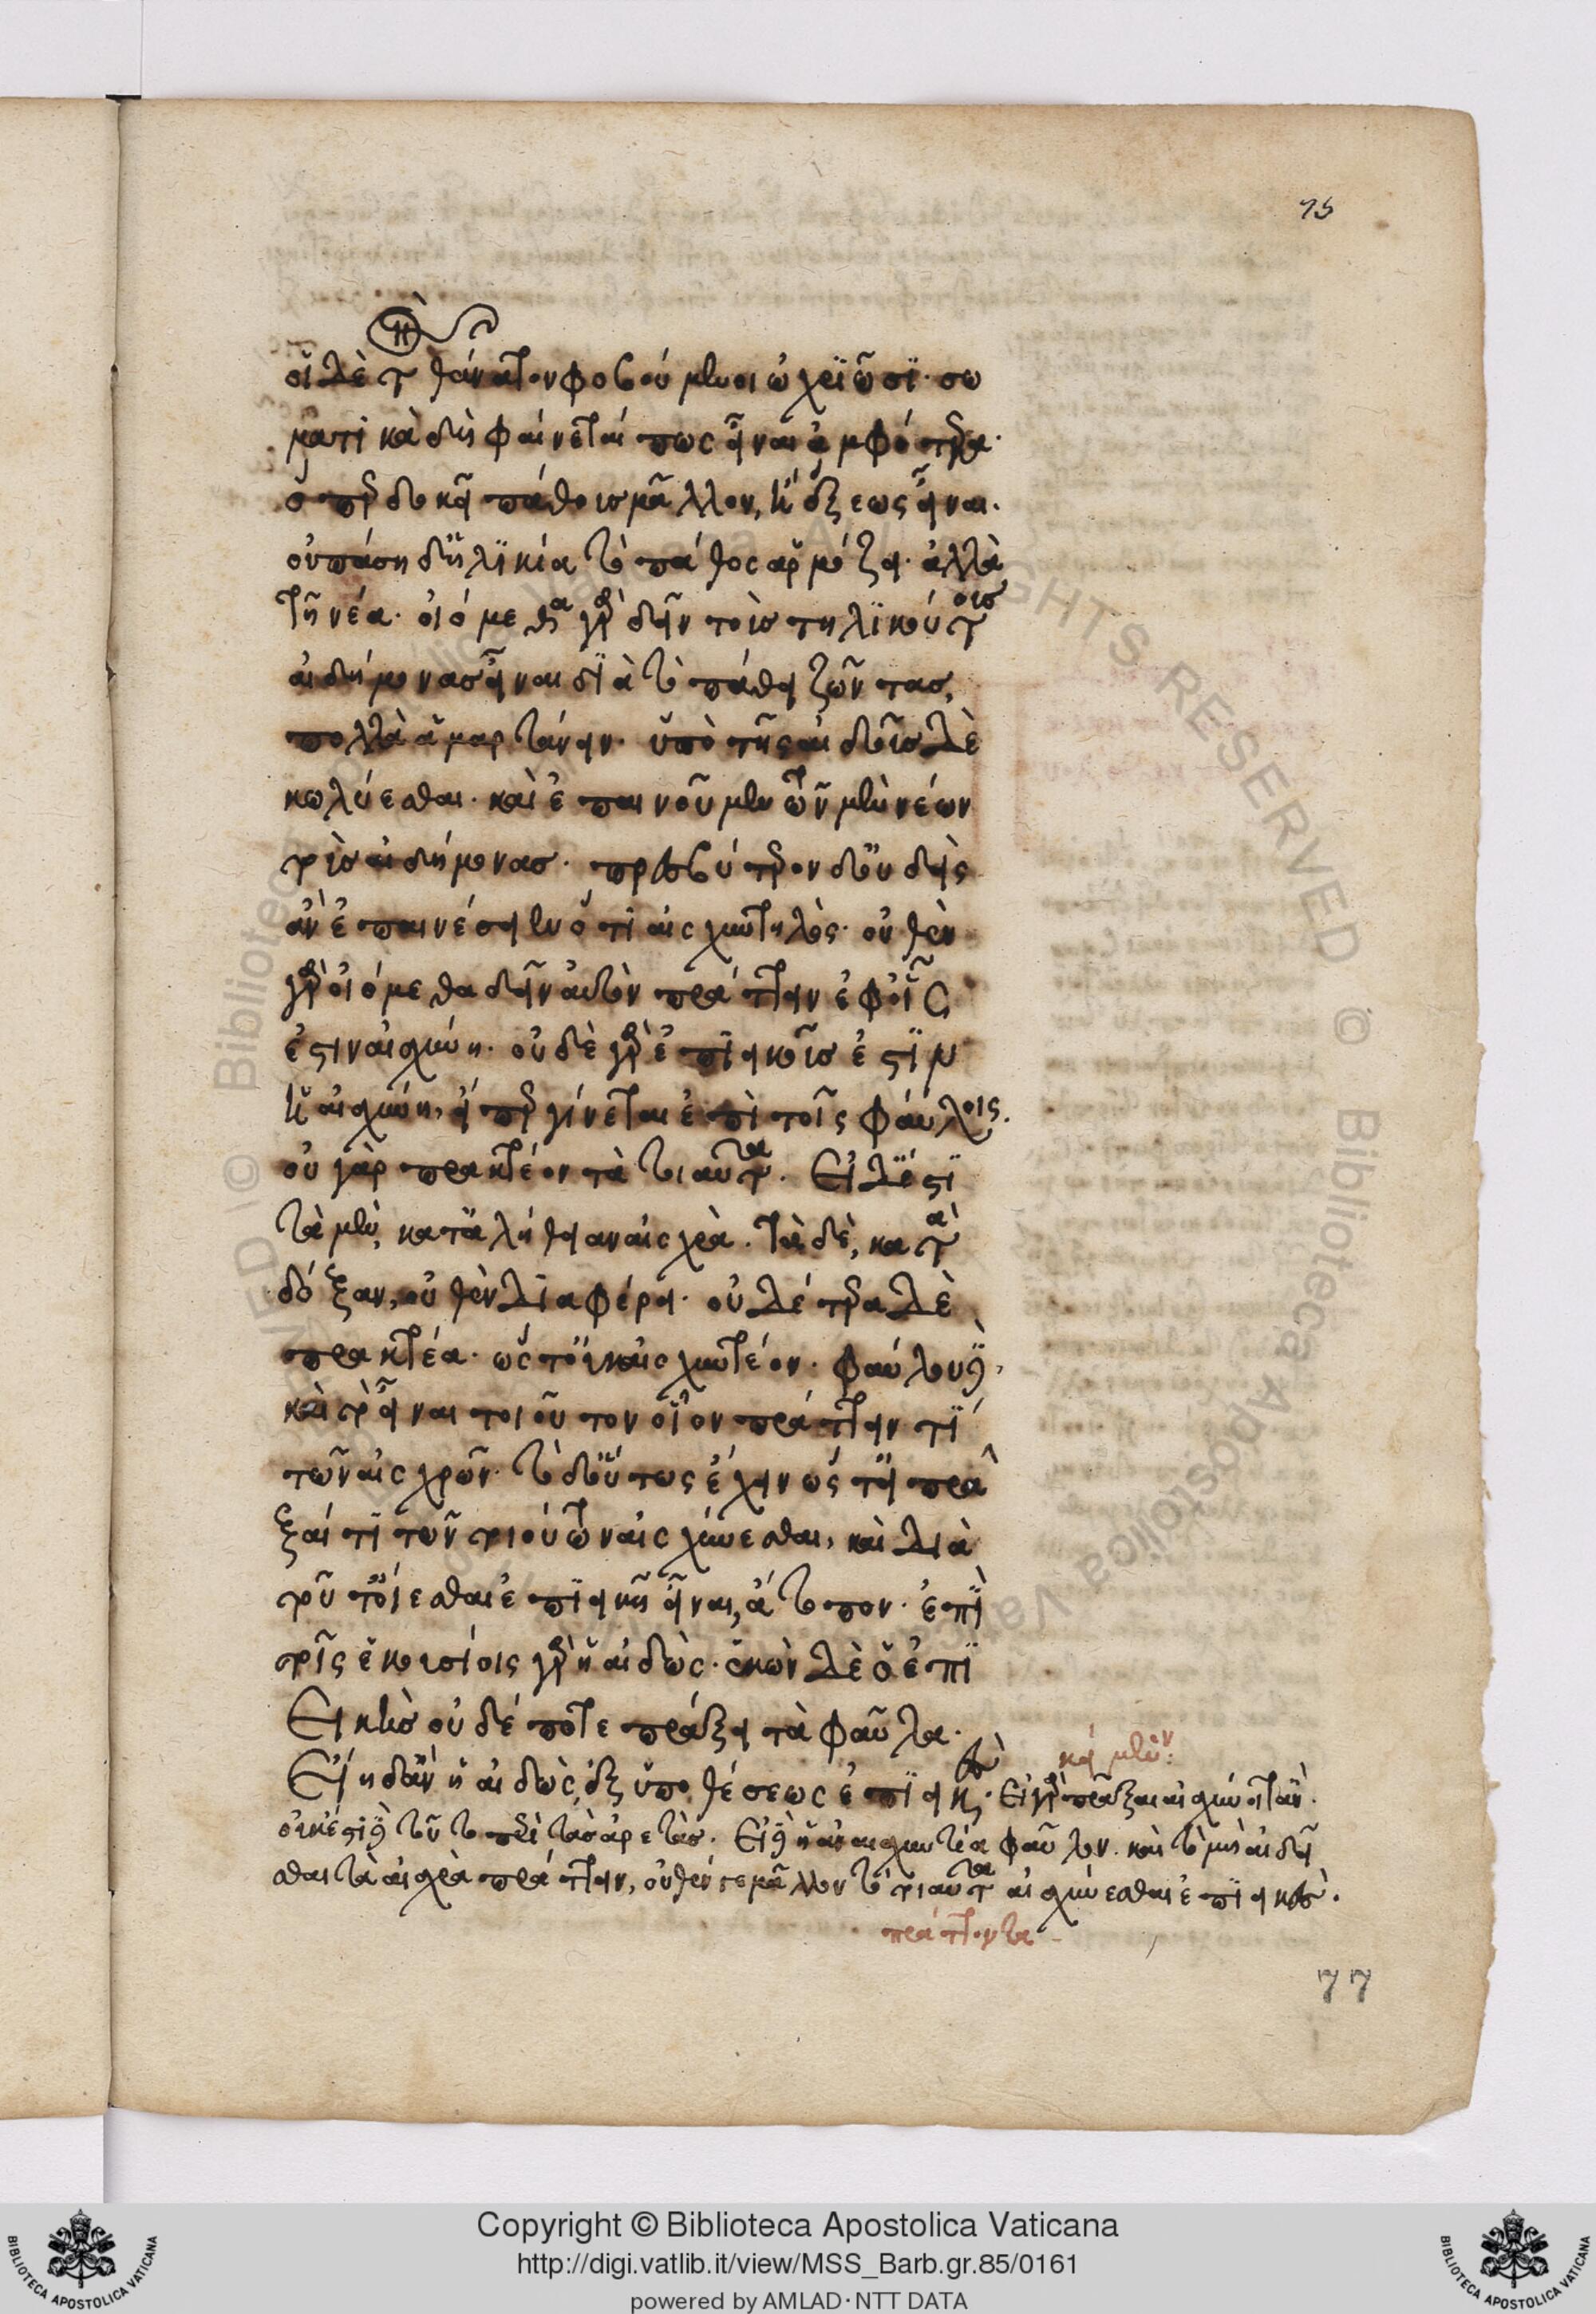 75
οἱ δὲ τὸν θάνατον φοβούμενοι ὠχριῶσι· σω
ματικὰ δὴ φαίνεταί πως εἶναι ἀμφότερα·
ὅπερ δοκεῖ πάθους μᾶλλον, ἢ ἕξεως εἶναι.
οὐ πάσῃ δ' ἡλικίᾳ τὸ πάθος ἁρμόζει· ἀλλὰ
τῇ νέᾳ· οἰόμεθα γὰρ δεῖν τοὺς τηλικούτους
αἰδήμονας εἶναι διὰ τὸ πάθει ζῶντας,
πολλὰ ἁμαρτάνειν· ὑπὸ τῆς αἰδοῦς δὲ
κωλύεσθαι· καὶ ἐπαινοῦμεν τῶν μὲν νέων
τοὺς αἰδήμονας· πρεσβύτερον δ' οὐδεὶς
ἂν ἐπαινέσειεν ὅτι αἰσχυντηλός· οὐθὲν
γὰρ οἰόμεθα δεῖν αὐτὸν πράττειν ἐφ' οἷς
ἐστὶν αἰσχύνη· οὐδὲ γὰρ ἐπιεικοῦς ἐστὶν
ἡ αἰσχύνη, εἴπερ γίνεται ἐπὶ τοῖς φαύλοις.
οὐ γὰρ πρακτέον τὰ τοιαῦτα. Εἰ δέ ἐστι
τὰ μὲν, κατ' ἀλήθειαν αἰσχρὰ· τὰ δὲ, κατὰ
δόξαν, οὐθὲν διαφέρει· οὐδέτερα δὲ
πρακτέα· ὥστ' οὐκ αἰσχυντέον· φαύλου δὲ,
καὶ τὸ εἶναι τοιοῦτον οἷον πράττειν τι
τῶν αἰσχρῶν· τὸ δ' οὕτως ἔχειν ὥστ' εἰ πρά
ξαι τι τῶν τοιούτων αἰσχύνεσθαι, καὶ διὰ
τοῦτ' οἴεσθαι ἐπιεικῆ εἶναι, ἄτοπον· ἐπὶ
τοῖς ἑκουσίοις γὰρ ἡ αἰδώς· ἑκὼν δὲ ὁ ἐπι
Εικὴς οὐδέποτε πράξει τὰ φαῦλα.
Εἴη δ' ἂν ἡ αἰδὼς ἐξ ὑποθέσεως ἐπιεικές· Εἰ γὰρ πράξαι αἰσχύνοιτ' ἄν·
οὐκ ἔστι δὲ τοῦτο περὶ τὰς ἀρετάς. Εἰ δ' ἡ ἀναισχυντία φαῦλον· καὶ τὸ μὴ αἰδεῖ
σθαι τὰ αἰσχρὰ πράττειν, οὐθέν γε μᾶλλον τὸ τοιαῦτα αἰσχύνεσθαι ἐπιεικές.
πράττοντα
77
Copyright © Biblioteca Apostolica Vaticana
http://digi.vatlib.it/view/MSS_Barb.gr.85/0161
powered by AMLAD · NTT DATA